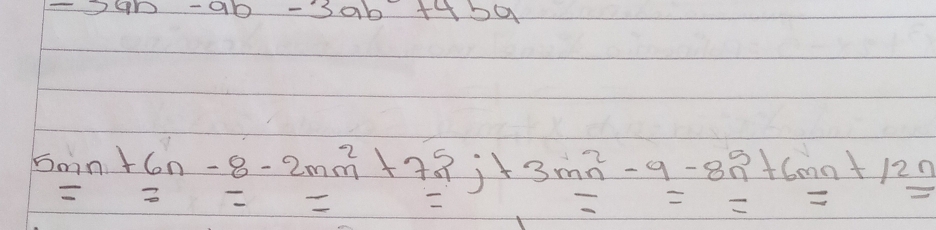 - 3ab - ab - 3ab + 4ba
5mn + 6n - 8 - 2mn² + 7n² ; + 3mn² - 9 - 8n² + 6mn + 12n